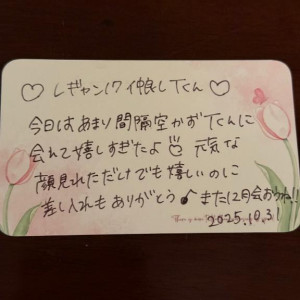 ♡ レギャン17 仲良しTくん ♡
今日はあまり間隔空かずTくんに
会れて嬉しすぎたよ 元気な
顔見れただけでも嬉しいのに
差し入れもありがとう♪また12月会おうね!!
2025.10.31